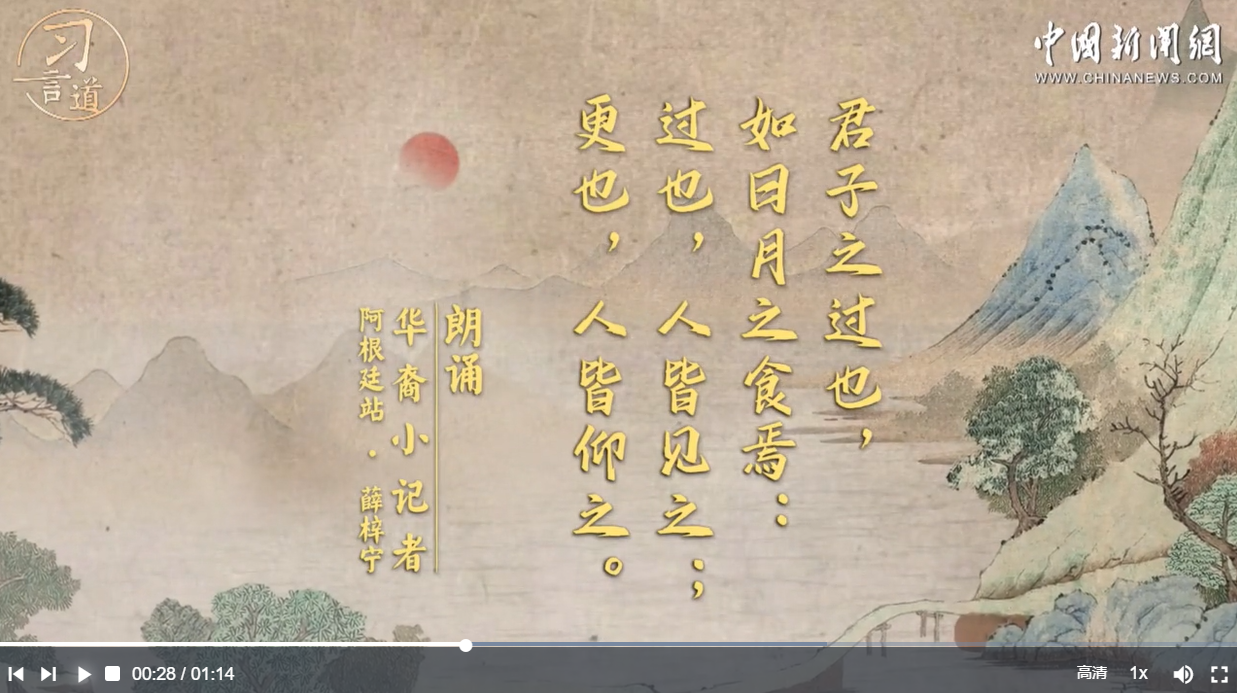 习
言道
中国新闻網
WWW.CHINANEWS.COM
君子之过也，
如日月之食焉：
过也，人皆见之；
更也，人皆仰之。
朗诵
华裔小记者
阿根廷站·薛梓宁
00:28 / 01:14
高清
1x